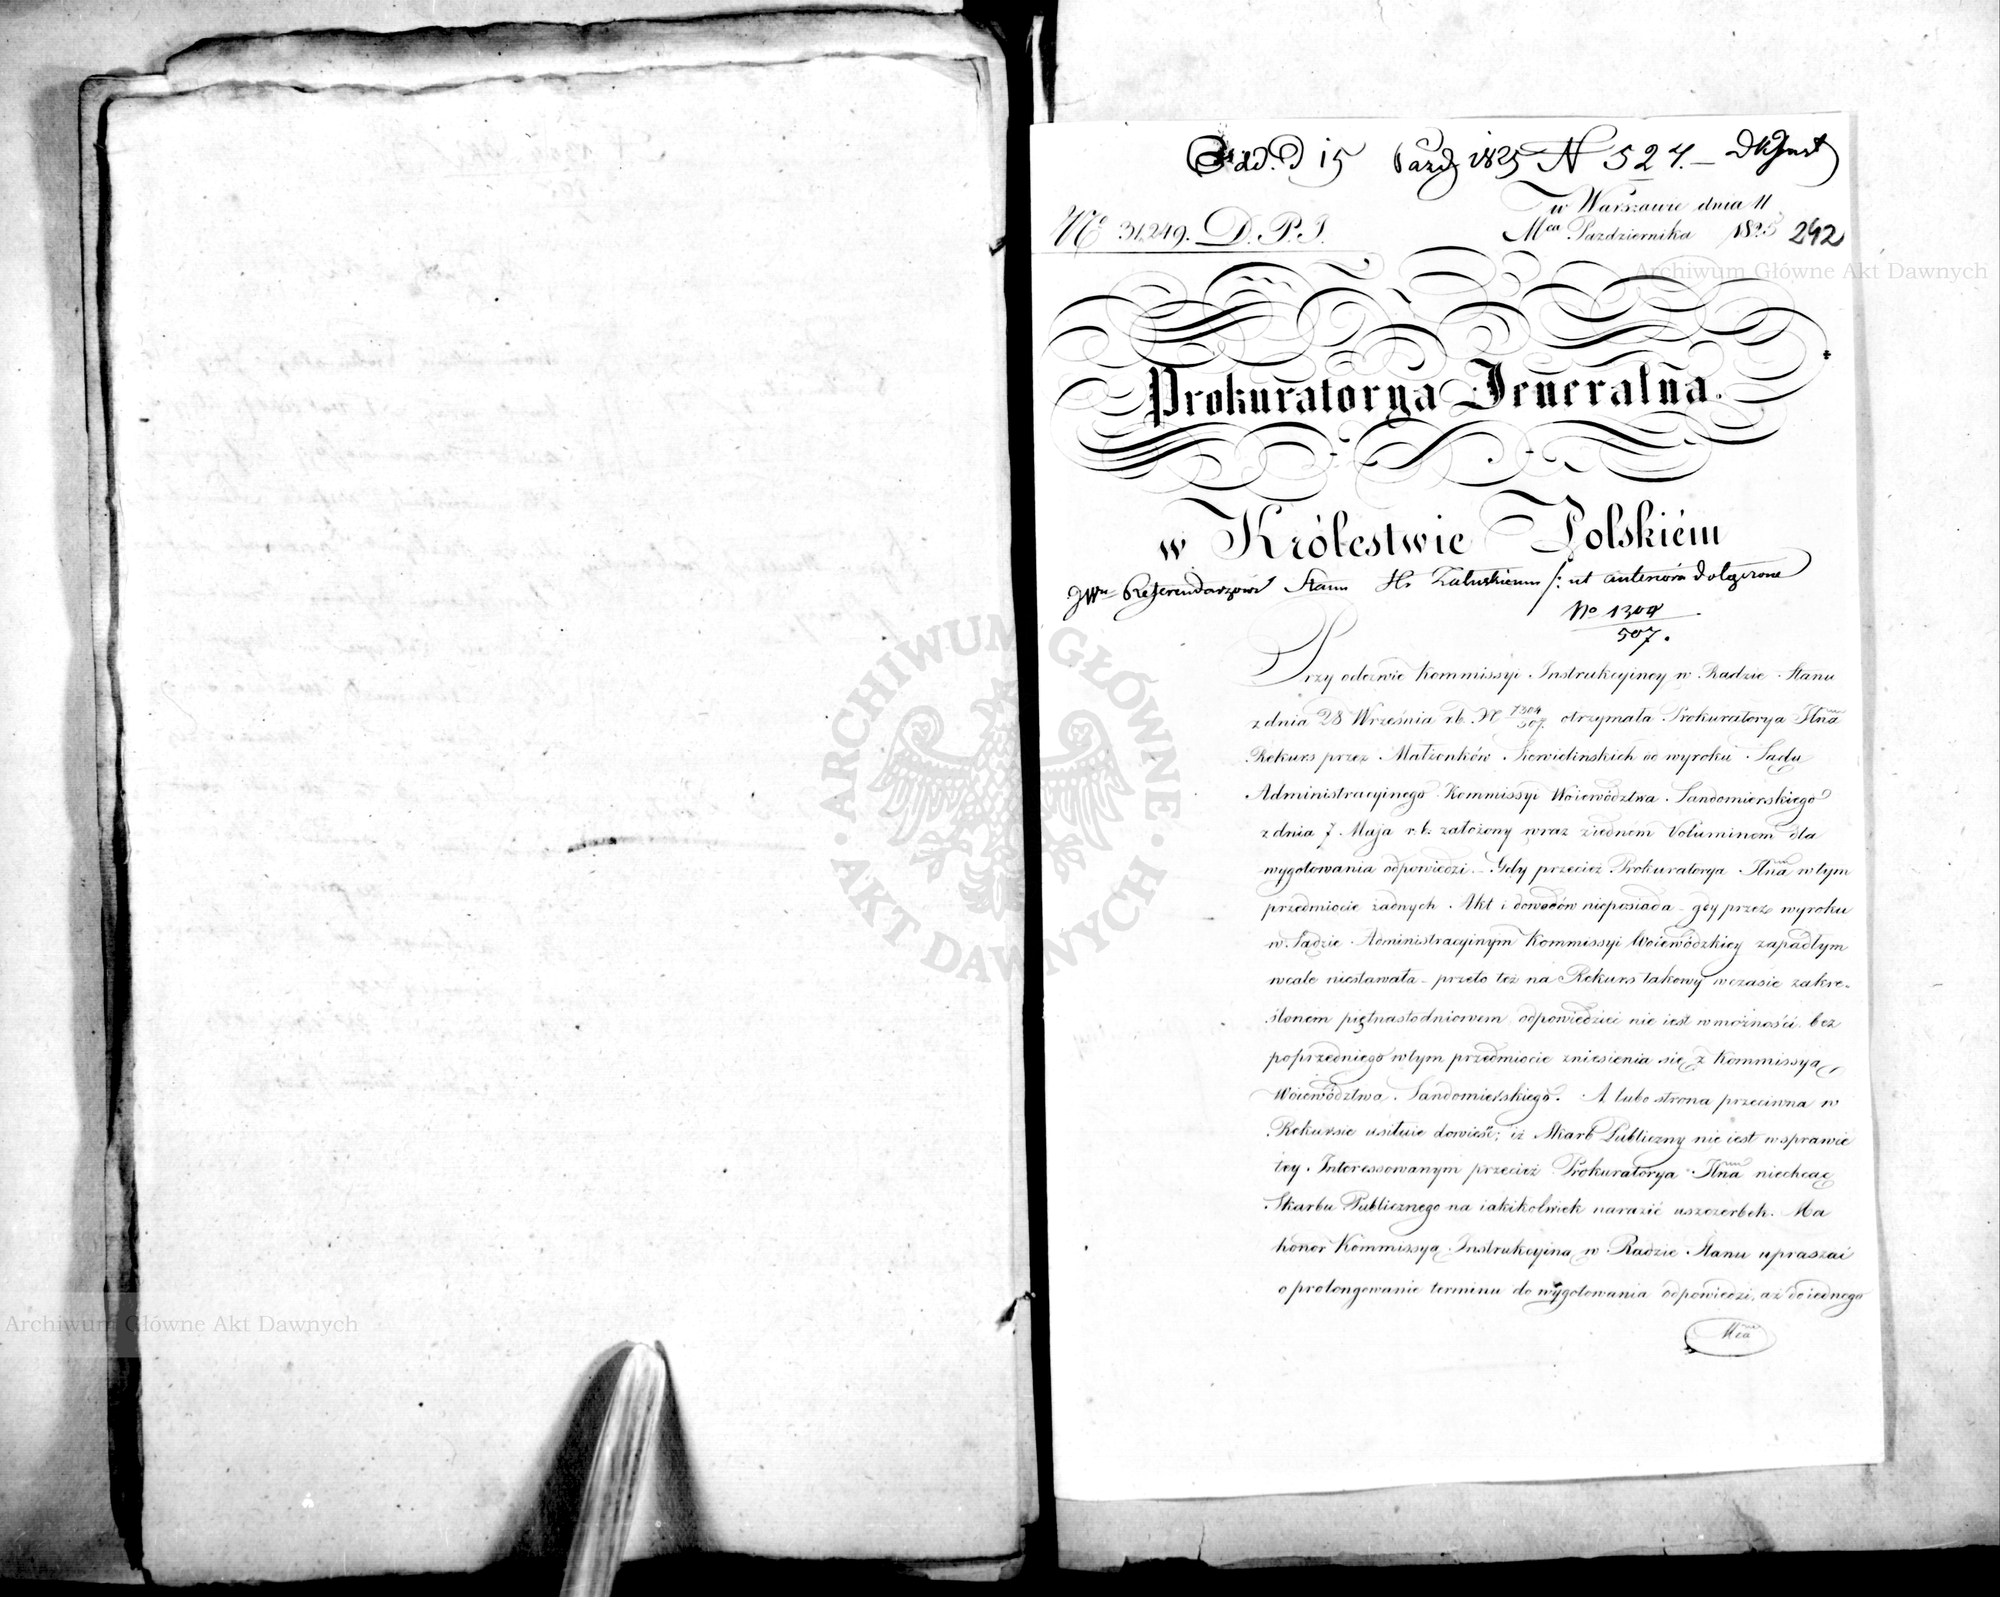 Odd. D 15 Paźdz 1825 N 527.-
w Warszawie dnia 11
No 31,249. D. P. J.
Mca Pazdziernika 1825
242
Prokuratorya Jeneralna.
w Królestwie Polskiém
JWu Referendarzowi Stanu Hr Załuskiemu /: ut anteriora dołączone
No 1304
507.
Przy odezwie Kommissyi Instrukcyiney w Radzie Stanu
z dnia 28 Września r.b. N 1304/507. otrzymała Prokuratorya Jlna
Rekurs przez Małżonków od wyroku Sądu
Administracyinego Kommissyi Woiewództwa Sandomierskiego
z dnia 7. Maja r.b. założony wraz ziednem Voluminem dla
wygotowania odpowiedzi. - Gdy przecież Prokuratorya Jlna w tym
przedmiocie żadnych Akt i dowodów nieposiada - gdy przez wyroku
w Sądzie Administracyinym Kommissyi Woiewódzkiey zapadłym
wcale niestawała - przeto też na Rekurs takowy w czasie zakre-
ślonem piętnastodniowem odpowiedzieć nie iest w możności bez
poprzedniego w tym przedmiocie zniesienia się z Kommissyą
Woiewództwa Sandomierskiego. A lubo strona przeciwna w
Rekursie usiłuie dowieść; iż Skarb Publiczny nie iest w sprawie
tey Interessowanym przecież Prokuratorya Jlna niechcąc
Skarbu Publicznego na iakikolwiek narazić uszczerbek. Ma
honor Kommissyą Instrukcyina w Radzie Stanu upraszać
o prolongowanie terminu do wygotowania odpowiedzi, aż do iednego
Mca
Archiwum Główne Akt Dawnych
ARCHIWUM GŁÓWNE · AKT DAWNYCH ·
Archiwum Główne Akt Dawnych